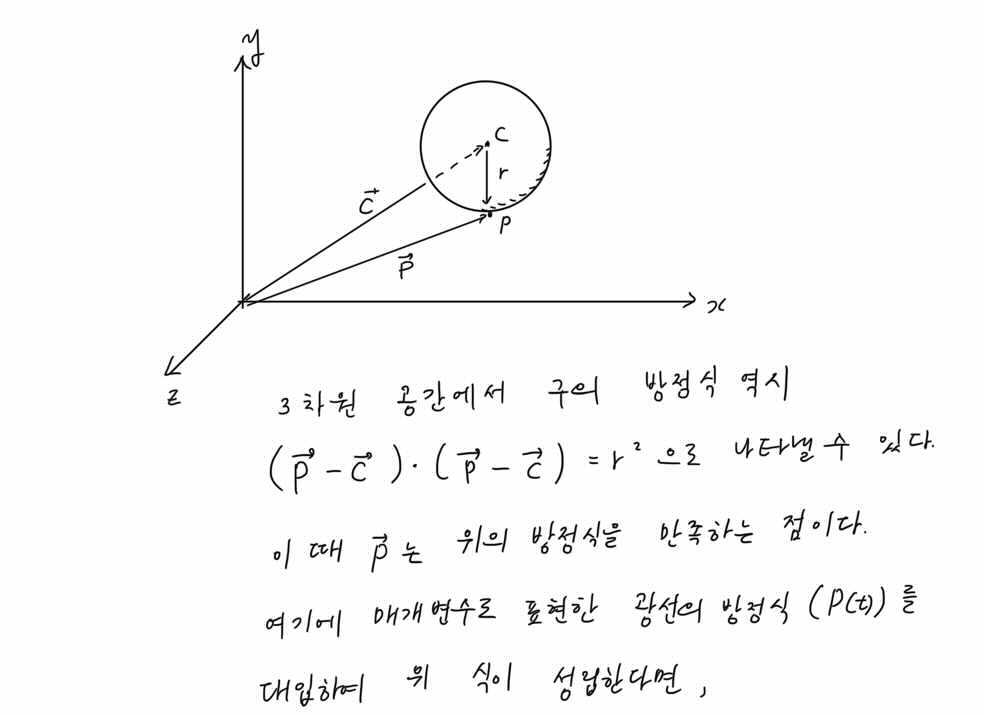 y
C
r
C⃗
P
P⃗
x
z
3차원 공간에서 구의 방정식 역시
(P⃗ - C⃗) · (P⃗ - C⃗) = r² 으로 나타낼 수 있다.
이 때 P⃗ 는 위의 방정식을 만족하는 점이다.
여기에 매개변수로 표현한 광선의 방정식 (P(t)) 를
대입하여 위 식이 성립한다면,